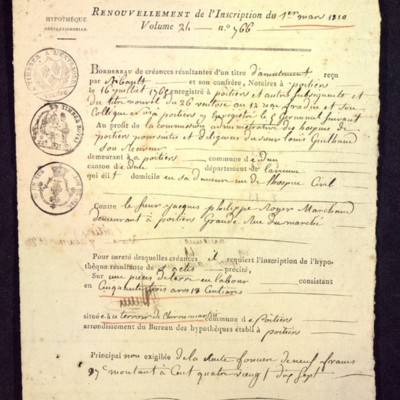 HYPOTHÈQUE
CONVENTIONNELLE.
RENOUVELLEMENT de l'Inscription du 1er mars 1810
Volume 24 — n.° 766
BORDEREAU de créances résultantes d'un titre reçu
par et son confrère, Notaires à poitiers
le 16 juillet enregistré à poitiers et autre
du titre nouvel du 26 ventose an 12
Collegue à poitiers enregistré le 5 Germinal suivant
Au profit de la commission administrative des hospices de
poitiers poursuites et diligences de sieur Louis Guilbaud
son
demeurant à poitiers commune de
canton de département de la vienne
qui élit domicile en sa demeure rue de l'hospice Civil
Contre le sieur jacques philippe Roger Marchand
demeurant à poitiers Grande Rue du marché
Pour sureté desquelles créances il requiert l'inscription de l'hypo-
thèque résultante de actes précité,
Sur une piece de terre en labour consistant
en Cinquante trois ares 18 Centiares
située au terroir de commune de poitiers
arrondissement du Bureau des hypothèques établi à poitiers
Principal non exigible de la de neuf francs
97c montant à Cent quatre vingt dix sept